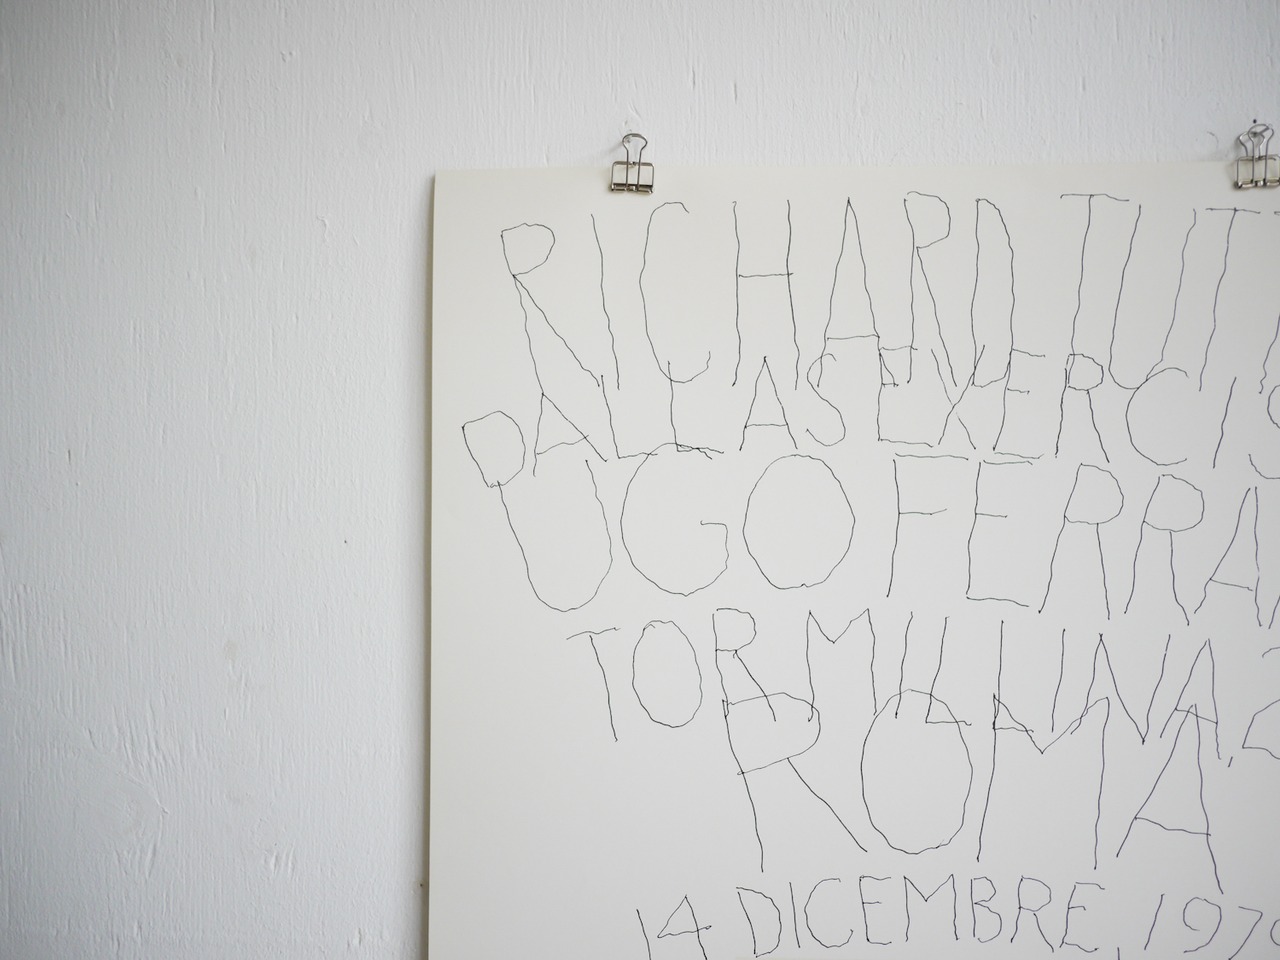 RICHARD TUTT
DALLAS EXERCIS
UGO FERRA
TOR MILLINA, 2
ROMA
14 DICEMBRE, 197